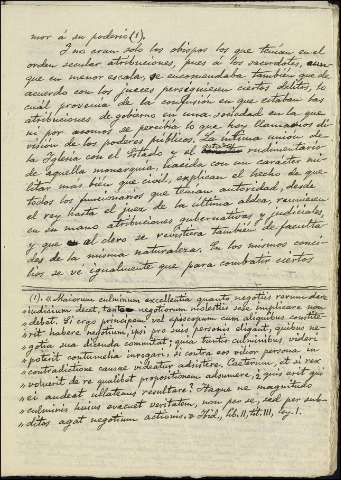 mor á su poderío (1).
Y no eran solo los obispos los que tenían en el
orden secular atribuciones, pues á los sacerdotes, aun
que en menor escala, se encomendaba también que de
acuerdo con los jueces persiguiesen ciertos delitos, lo
cual provenía de la confusión en que estaban las
atribuciones de gobierno en una sociedad en la que
ni por asomos se percibía lo que hoy llamamos di
visión de los poderes públicos. La íntima unión de
la Iglesia con el Estado y el estado rudimentario
de aquella monarquía, nacida con un carácter mi
litar mas bien que civil, explican el hecho de que
todos los funcionarios que tenían autoridad, desde
el rey hasta el juez de la última aldea, reuniesen
en su mano atribuciones gubernativas y judiciales
y que al clero se revistiera también de faculta
des de la misma naturaleza. En los mismos conci-
lios se ve igualmente que para combatir ciertos
(1). « Maiorum culminum excellentia quanto negotiis rerum dare
» iudicium decet, tanto negotiorum molestiis sese implicare non
» debet. Si ergo principem vel episcopum cum aliquibus constite-
» rit habere negotium, ipsi pro suis personis eligant, quibus ne-
» gotia sua dicenda committant; quia tantis culminibus videri
» poterit contumelia inrogari, si contra eos vilior persona in
» contradictione causae videatur adsistere. Caeterum, et si rex
» voluerit de re qualibet propositionem adsumere, quis erit qui
» ei audeat ullatenus resultare? Itaque ne magnitudo
» culminis huius evacuet veritatem, non per se, sed per sub-
» ditos agat negotium actionis. » Ibid., lib. II, tít. III, ley 1.